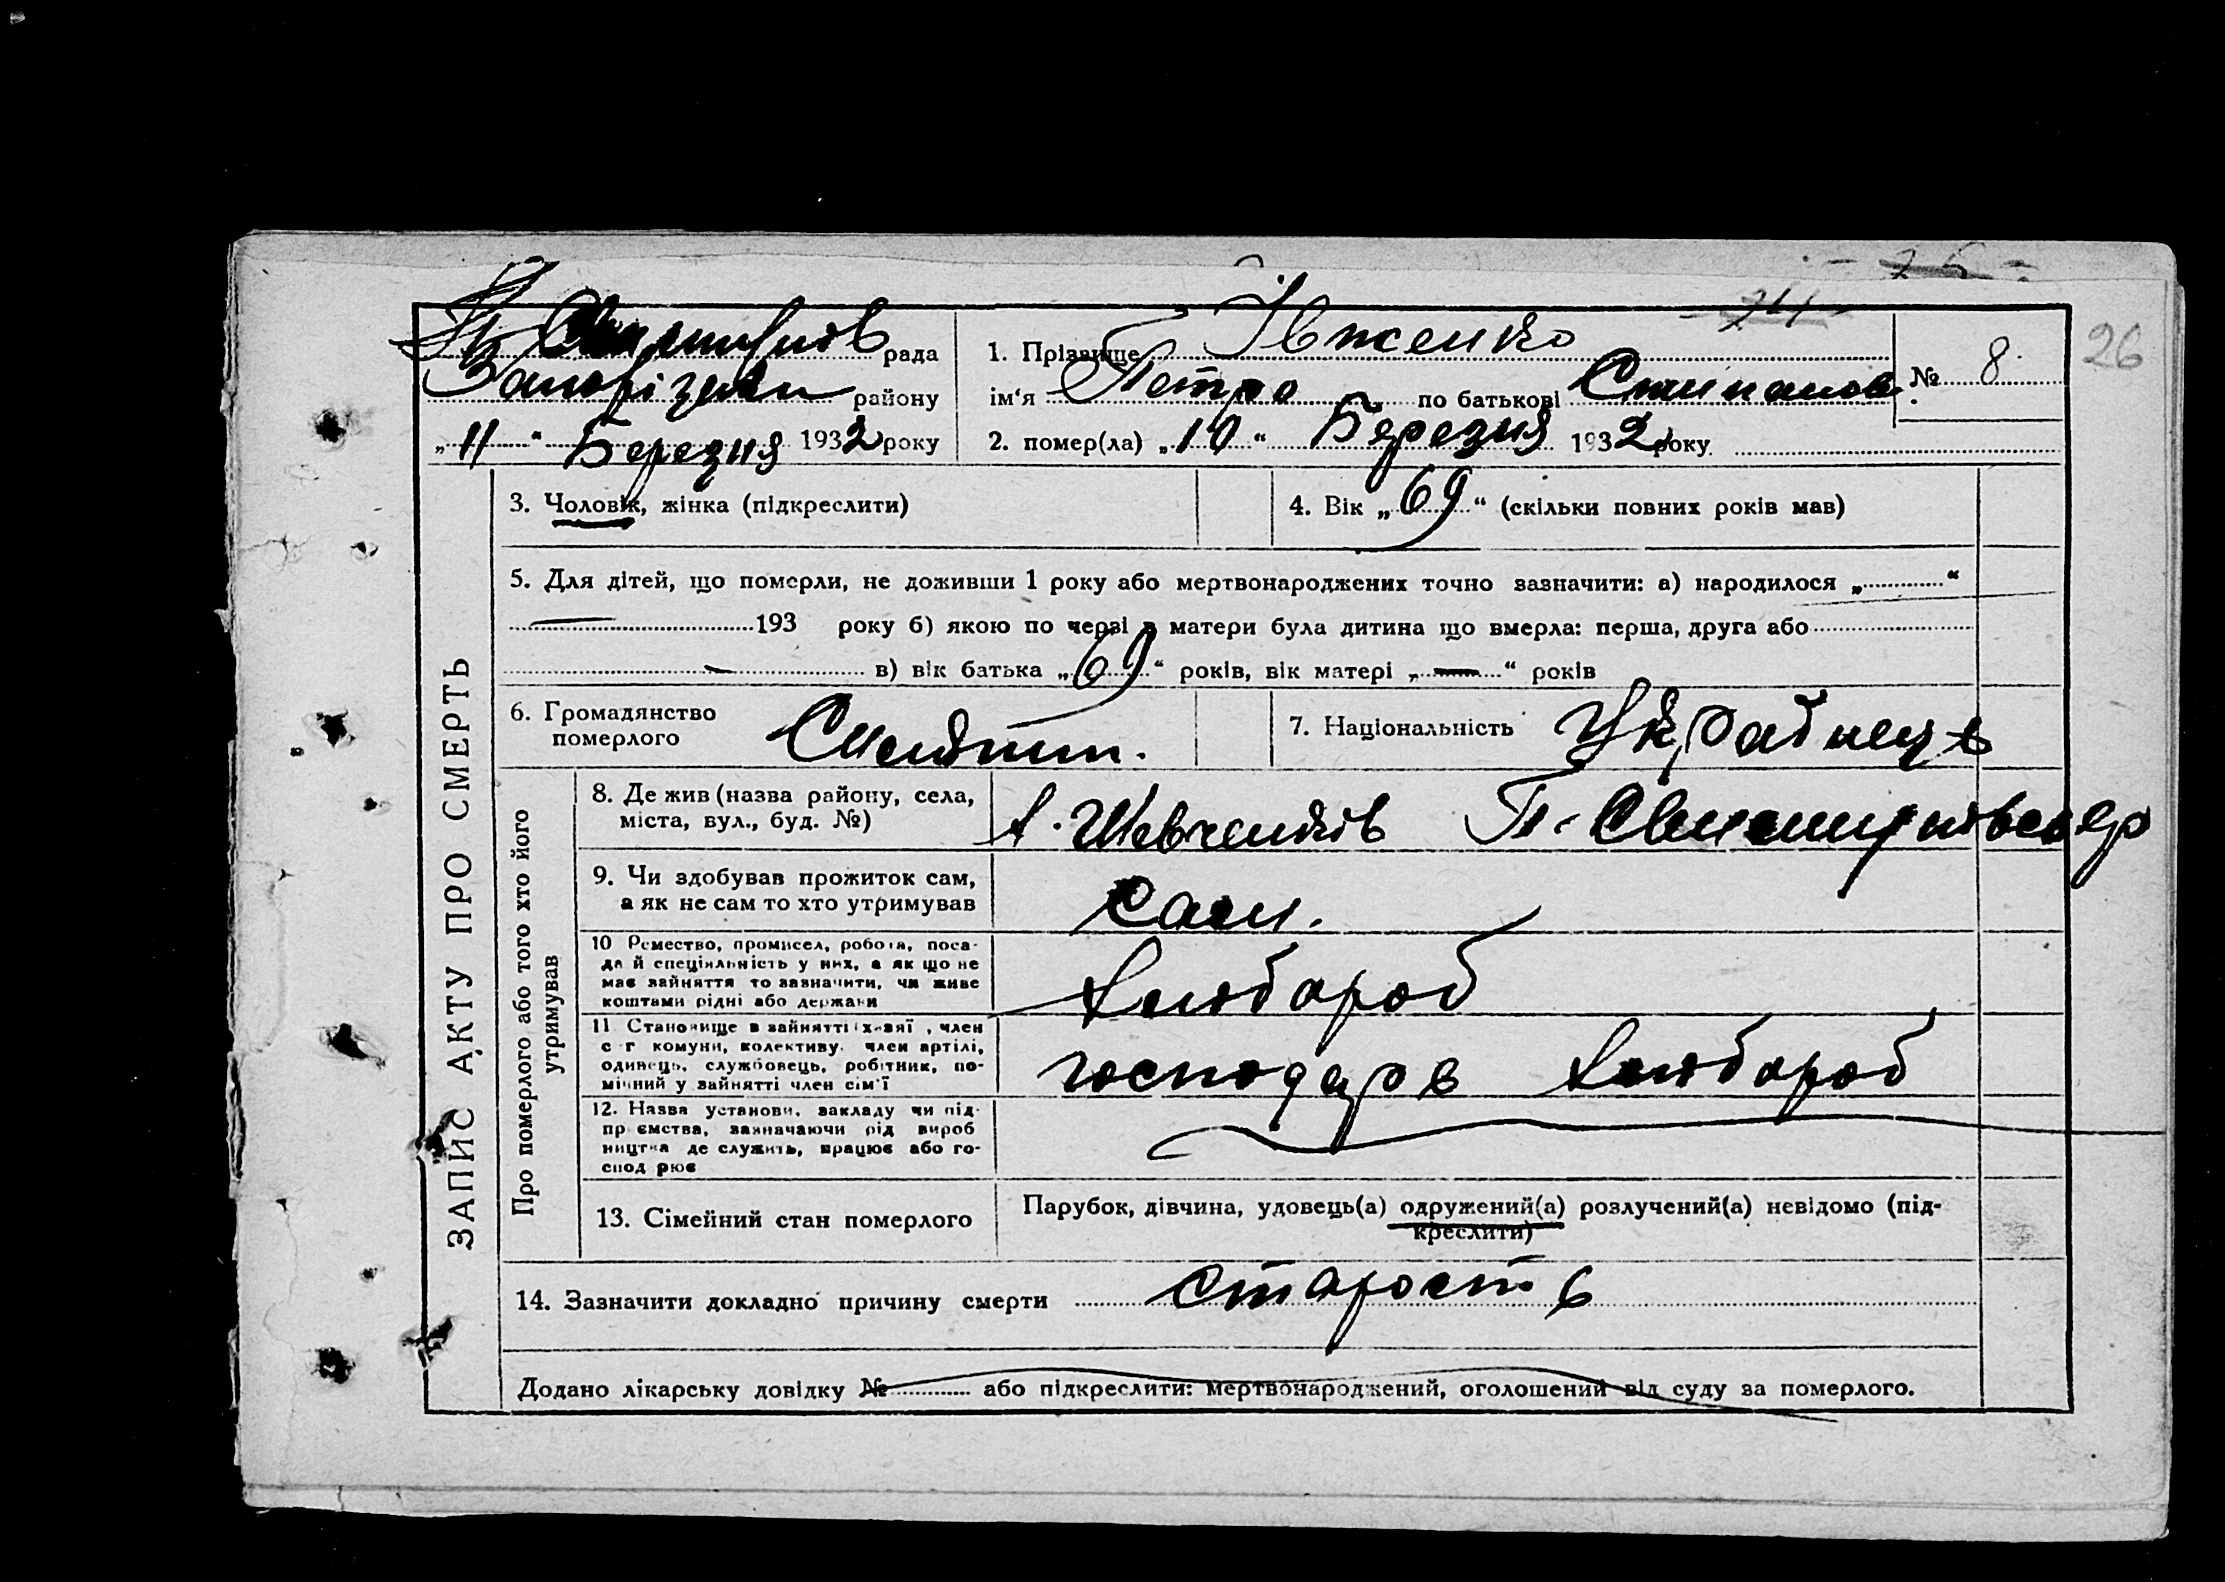 26
рада
Запорізьки району
„11“ Березня 1932 року
1. Прізвище Івженко
ім‘я Петро по батькові Степанов.
№ 8
2. помер(ла) „10“ Березня 1932 року
ЗАПИС АКТУ ПРО СМЕРТЬ
3. Чоловік, жінка (підкреслити)
4. Вік „69“ (скільки повних років мав)
5. Для дітей, що померли, не доживши 1 року або мертвонароджених точно зазначити: а) народилося „ “
193 року б) якою по черзі в матери була дитина що вмерла: перша, друга або
в) вік батька „69“ років, вік матері „—“ років
6. Громадянство
померлого
7. Національність Українець
Про померлого або того хто його
утримував
8. Де жив (назва району, села,
міста, вул., буд. №)
Шевченків
9. Чи здобував прожиток сам,
а як не сам то хто утримував
сам.
10 Ремество, промисел, робота, поса-
да й спеціяльність у них, а як що не
має зайняття то зазначити, чи живе
коштами рідні або держави
хлібороб
11 Становище в зайнятті член
с-г комуни, колективу, член артілі,
одинець, службовець, робітник, по-
мічний у зайнятті член сім'ї
господарь хлібороб
12. Назва установи, закладу чи під-
приємства, зазначаючи рід вироб
ництва де служить, працює або го-
сподарює
13. Сімейний стан померлого
Парубок, дівчина, удовець(а) одружений(а) розлучений(а) невідомо (під-
креслити)
14. Зазначити докладно причину смерти старость
Додано лікарську довідку № або підкреслити: мертвонароджений, оголошений від суду за померлого.